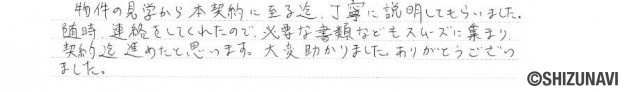 物件の見学から本契約に至る迄、丁寧に説明してもらいました。
随時、連絡をしてくれたので、必要な書類などもスムーズに集まり、
契約迄進めたと思つます。大変助かりました。ありがとうござい
ました。
©SHIZUNAVI